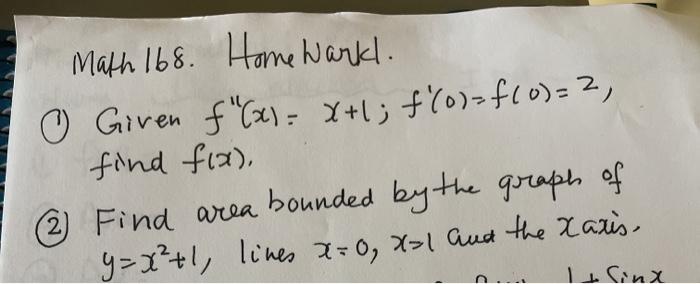 Math 168. Homewark1.
① Given f"(x) = x+1; f'(0)=f(0)=2,
find f(x).
② Find area bounded by the graph of
y=x²+1, lines x=0, x=1 and the x axis.
1+ Sinx